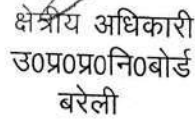 क्षेत्रीय अधिकारी
उ०प्र०प्र०नि०बोर्ड
बरेली